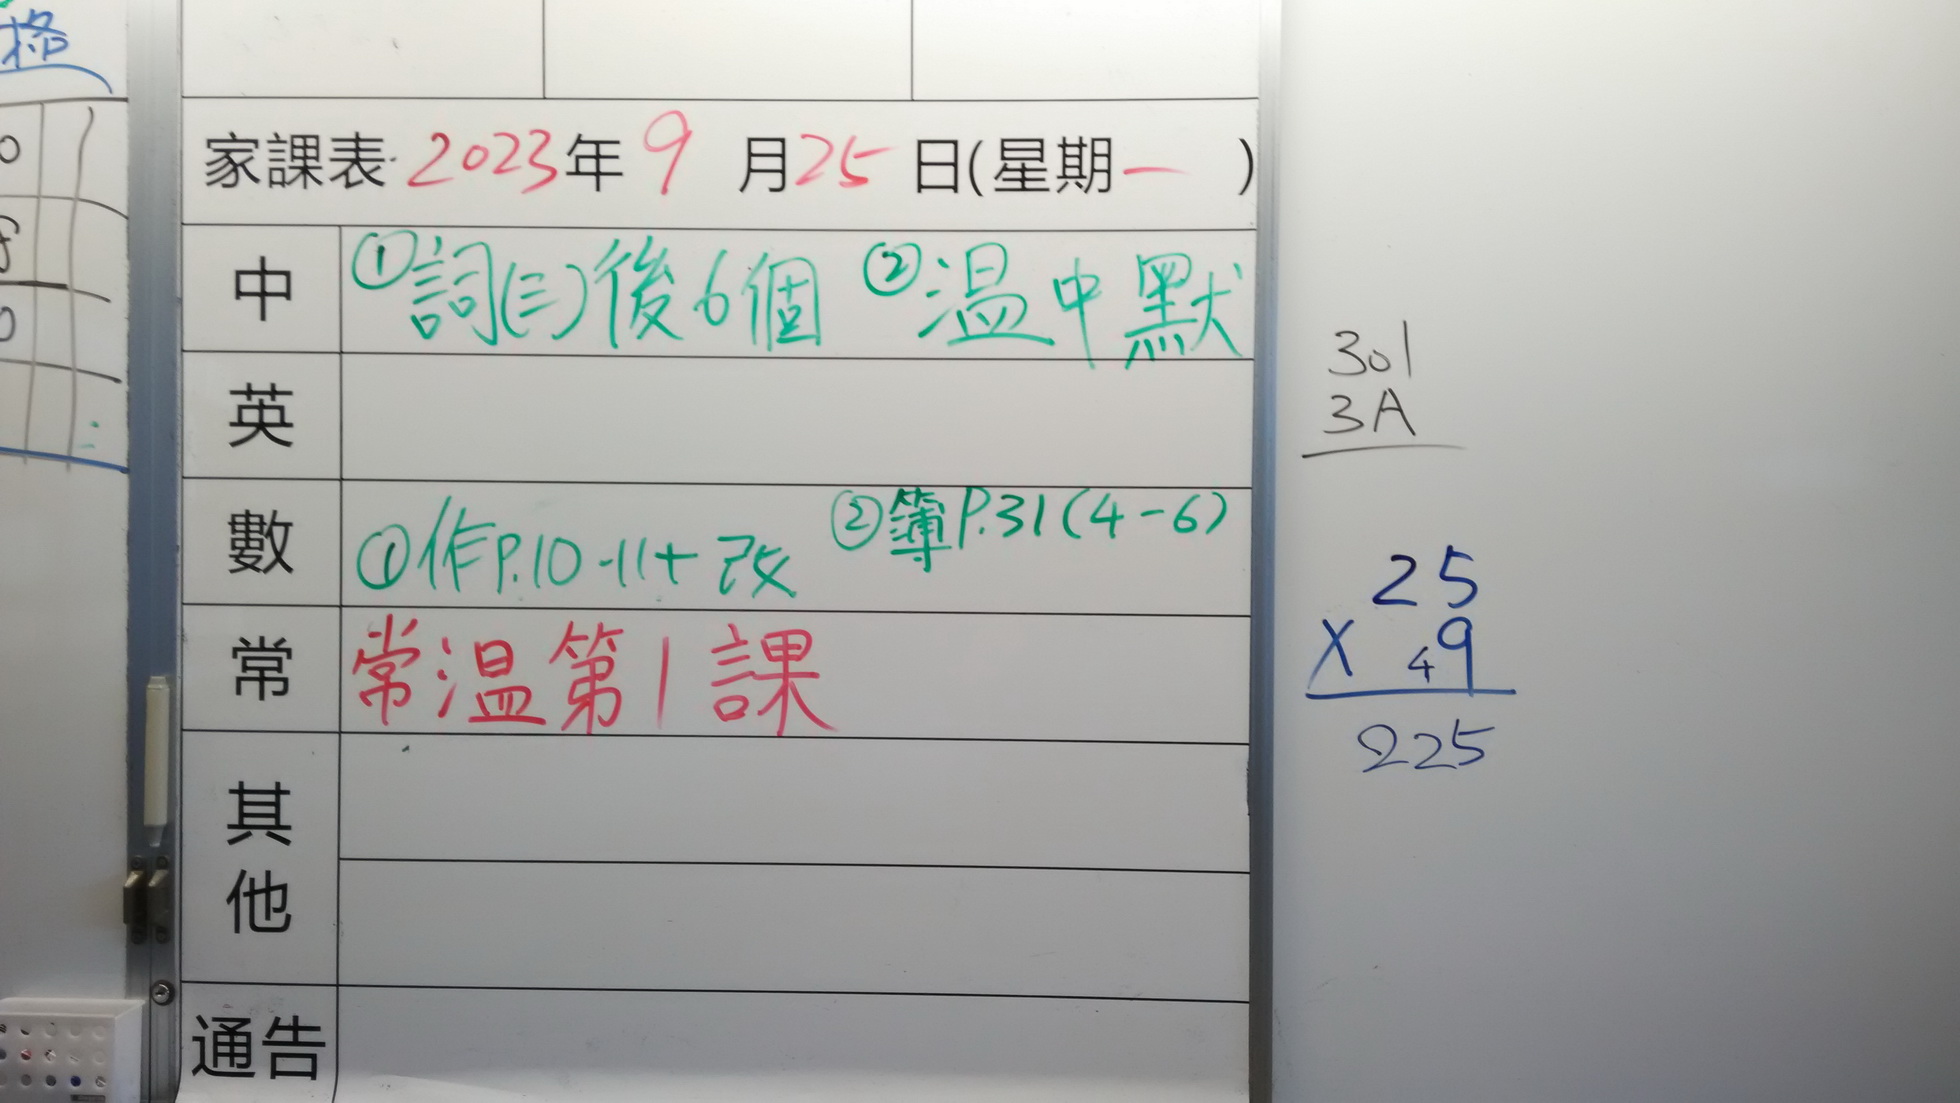 格
0
8
0
家課表 2023年 9 月 25 日(星期一 )
中 ①詞(三)後6個 ②温中默
英
數 ①作P.10-11+改 ②簿P.31(4-6)
常 常温第1課
其他
通告
301
3A
25
X 49
225